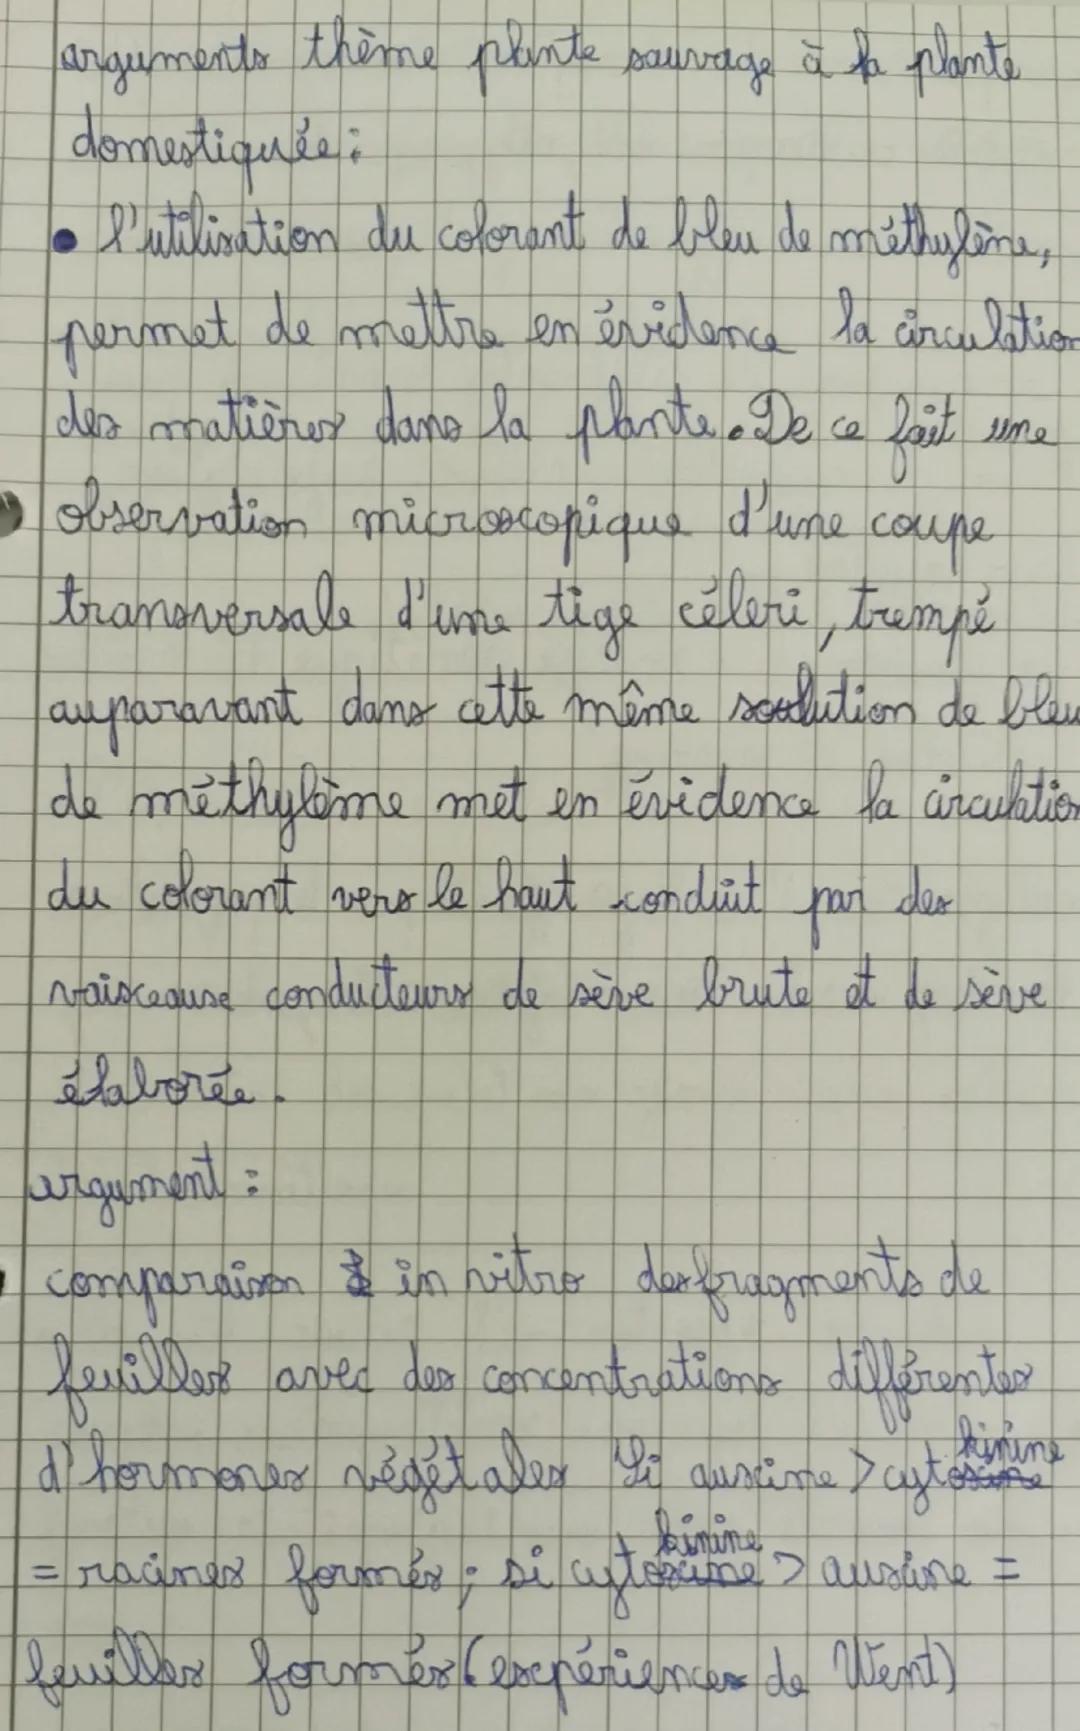 arguments thème plante sauvage à la plante
domestiquée :
• l'utilisation du colorant de bleu de méthylène,
permet de mettre en évidence la circulation
des matières dans la plante. De ce fait une
observation microscopique d'une coupe
transversale d'une tige céleri, trempé
auparavant dans cette même solution de bleu
de méthylème met en évidence la circulation
du colorant vers le haut conduit par des
vaisceause conducteurs de sève brute et de sève
élaborée.
argument :
comparaison in vitro des fragments de
feuilles avec des concentrations différentes
kinine
d'hormones végétales Si auscine > cytoscine
kinine
= racines formés ; si cytoscine > auscine =
feuilles formés (escpériences de Went)